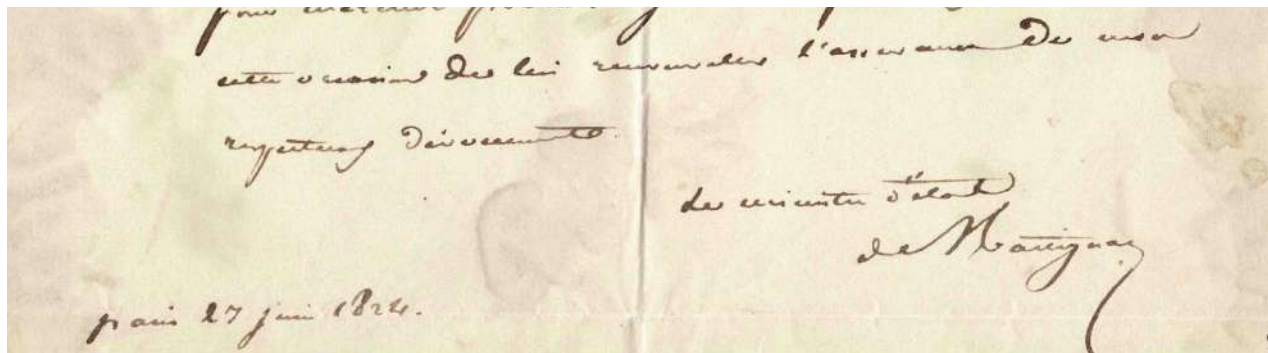 pour
cette occasion de lui renouveler l'assurance de mon
respectueux dévouement
Le ministre d'état
de Martignac
paris 27 juin 1824.